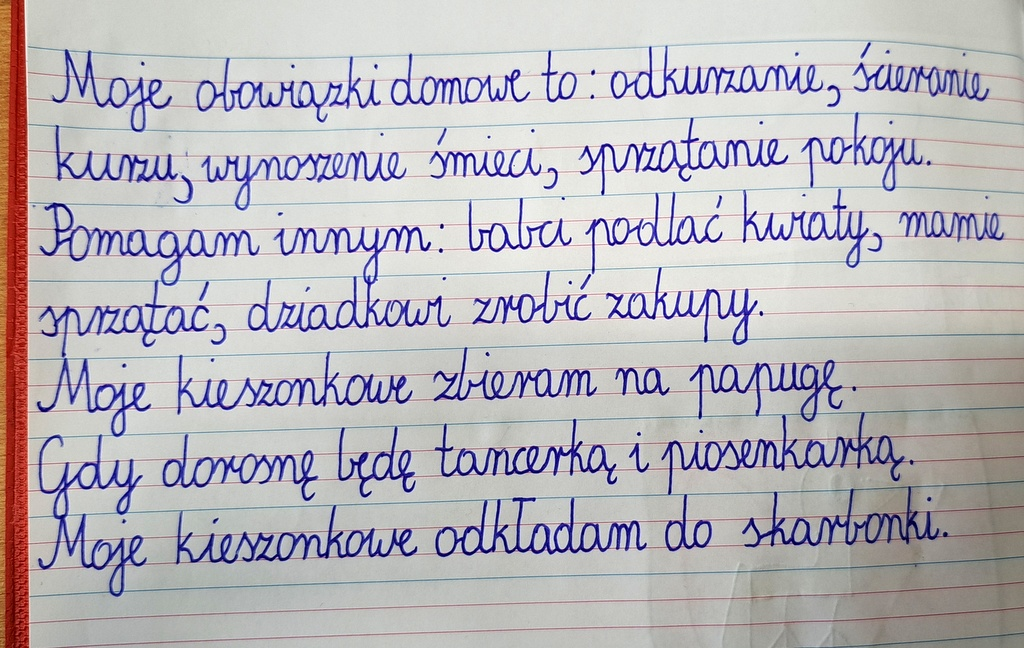 Moje obowiązki domowe to: odkurzanie, ścieranie
kurzu, wynoszenie śmieci, sprzątanie pokoju.
Pomagam innym: babci podlać kwiaty, mamie
sprzątać, dziadkowi zrobić zakupy.
Moje kieszonkowe zbieram na papugę.
Gdy dorosnę będę tancerką i piosenkarką.
Moje kieszonkowe odkładam do skarbonki.